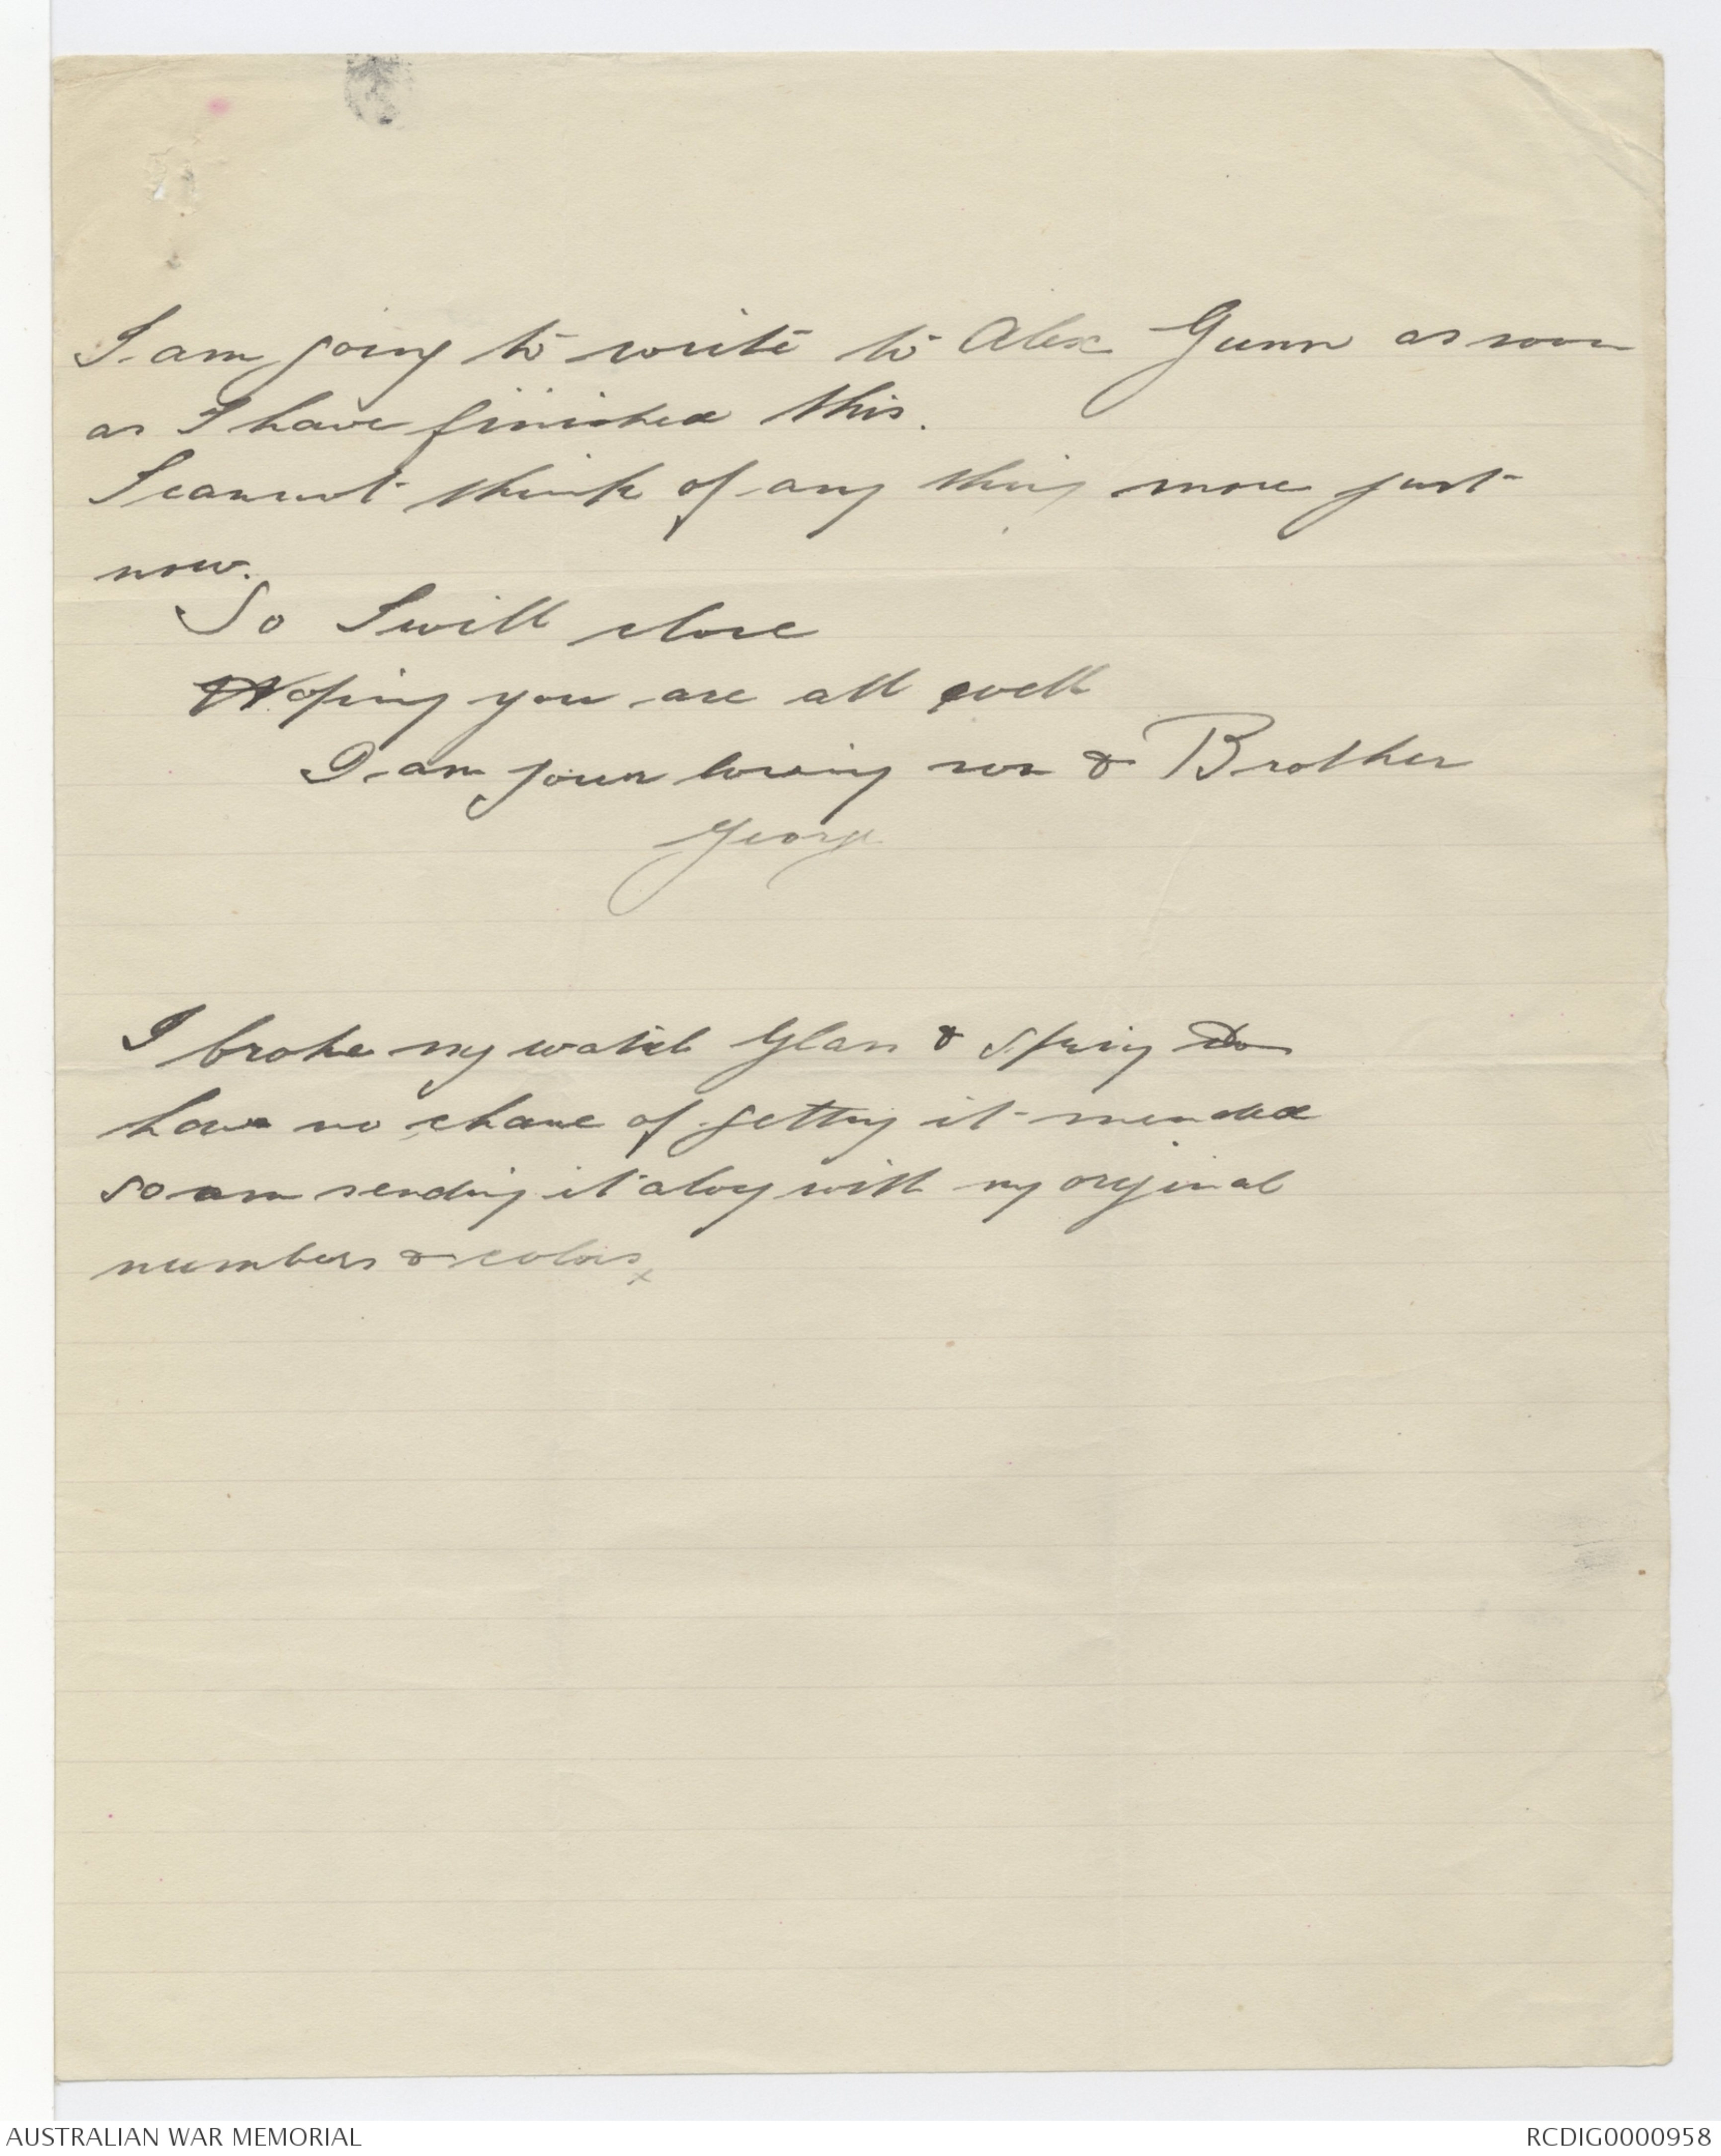 I am going to write to Alex Gunn as soon
as I have finished this.
I cannot think of any thing more just
now.
So I will close
Hoping you are all well
I am your loving son & Brother
George
I broke my watch Glass & Spring
have no chance of getting it mended
so am sending it along with my orginal
numbers & colors x
AUSTRALIAN WAR MEMORIAL
RCDIG0000958